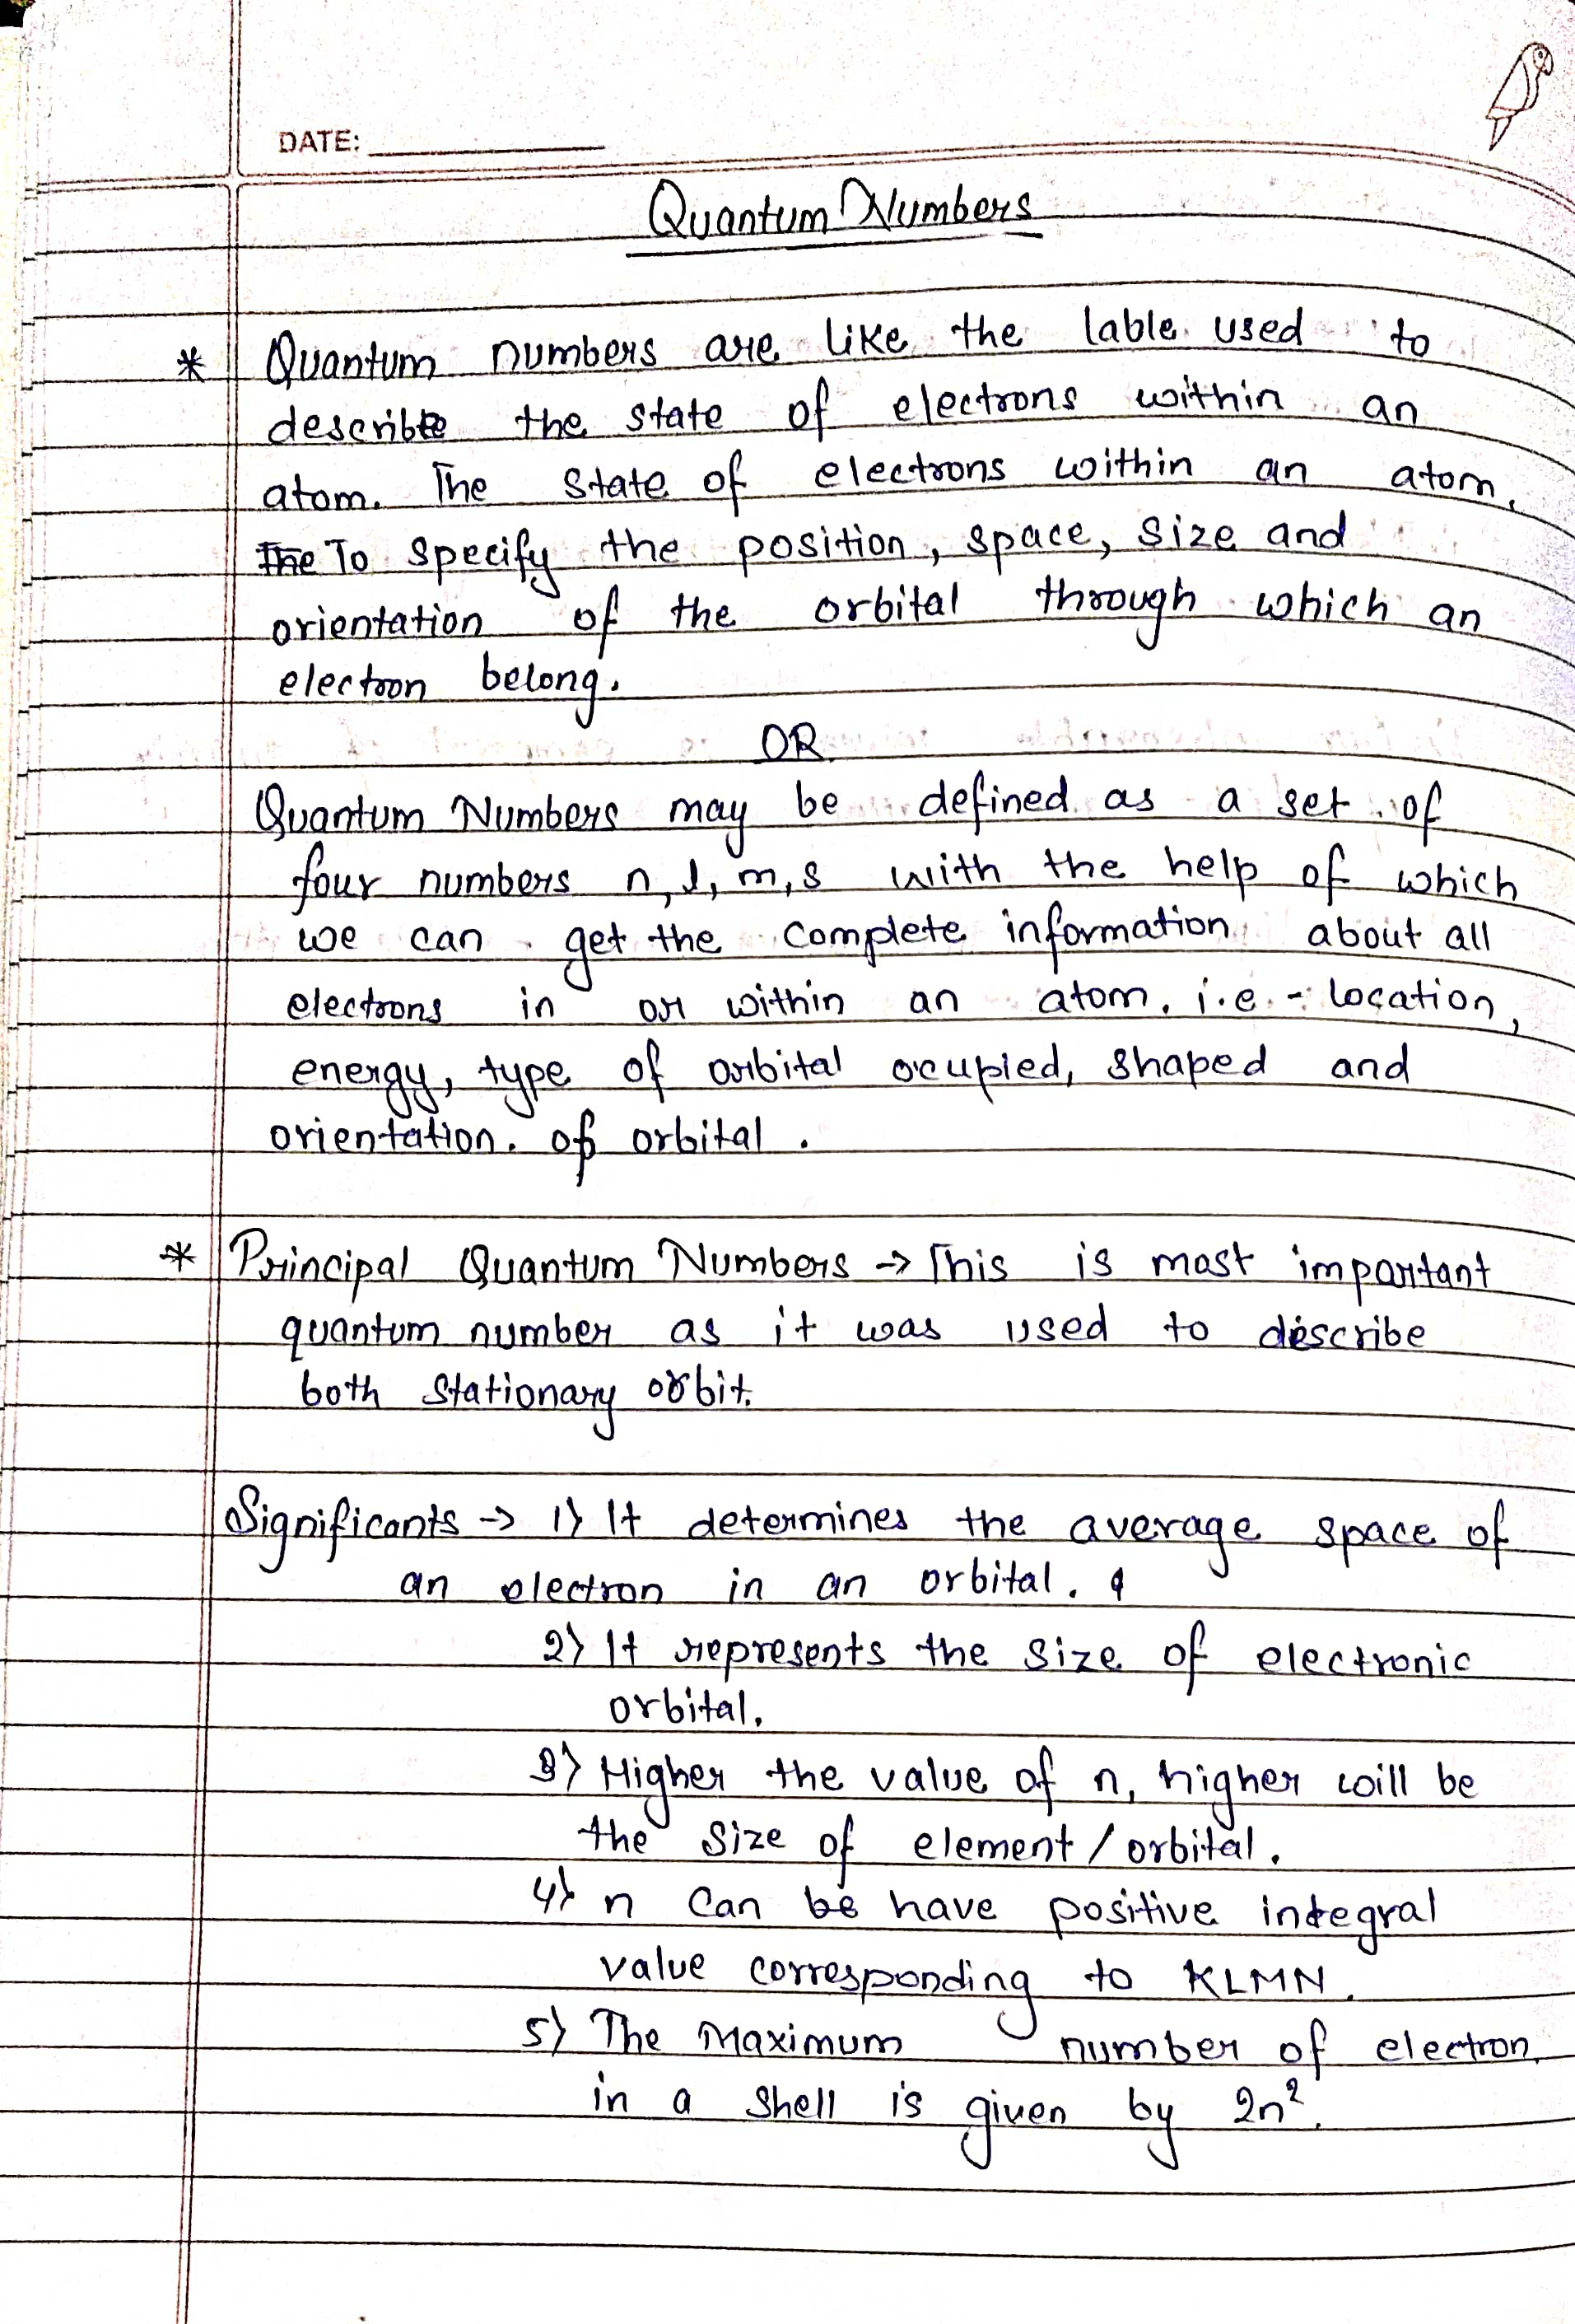 DATE:
Quantum Numbers
* Quantum numbers are like the lable used to
describe the state of electrons within an
atom. The state of electrons within an atom,
The To specify the position, space, size and
orientation of the orbital through which an
electron belong.
OR
Quantum Numbers may be defined as a set of
four numbers n, l, m, s with the help of which
we can get the complete information about all
electrons in or within an atom. i.e - location,
energy, type of orbital ocupied, shaped and
orientation. of orbital.
* Principal Quantum Numbers → This is most important
quantum number as it was used to describe
both stationary orbit.
Significants → 1) It determines the average space of
an electron in an orbital.
2) It represents the size of electronic
orbital.
3) Higher the value of n, higher will be
the size of element / orbital.
4) n can be have positive integral
value corresponding to KLMN.
5) The Maximum number of electron
in a shell is given by 2n².